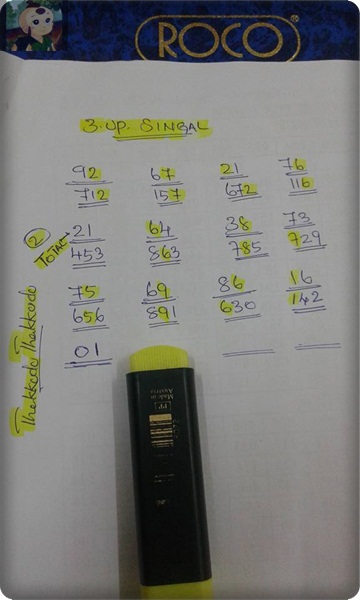 ROCO®
3-UP SINGAL
92 67 21 76
712 157 672 116
2 TOTAL 21 64 38 73
453 863 785 729
75 69 86 16
656 891 630 142
01
Thekkodo Thekkodo
Made in
Austria